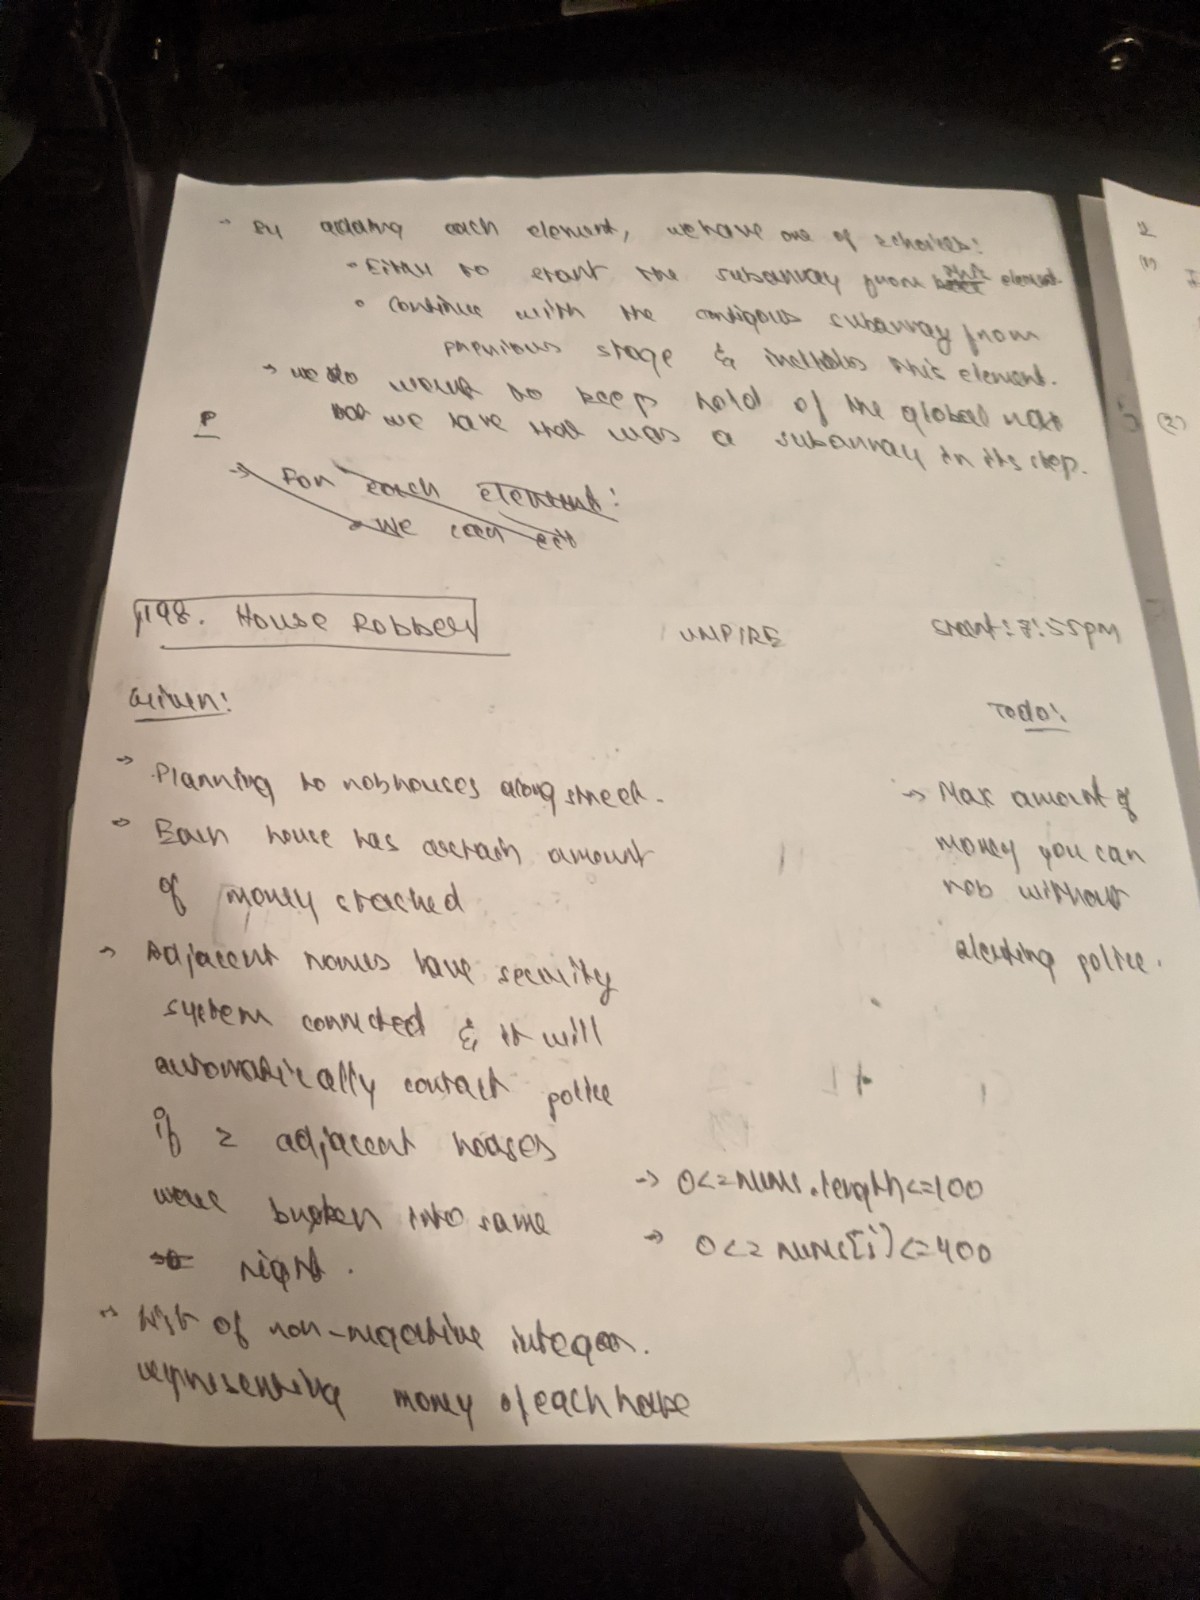 → By adding each element, we have one of 2 choices:
• Either to start the subarray from this element.
• Continue with the contigous subarray from
previous stage & includes this element.
→ we do want to keep hold of the global max
that we have that was a subarray in its step.
P
→ For each element:
• We can eit
198. House Robber
UMPIRE
Start: 7:55pm
Given:
Todo:
→ Planning to rob houses along street.
→ Each house has certain amount
of money stached
→ Adjacent homes have security
system connected & it will
automatically contact police
if 2 adjacent houses
were broken into same
night.
→ List of non-negative integers.
representing money of each house
→ Max amount of
money you can
rob without
alerting police.
→ 0<=nums.length<=100
→ 0<=nums[i]<=400
(1)
(2)